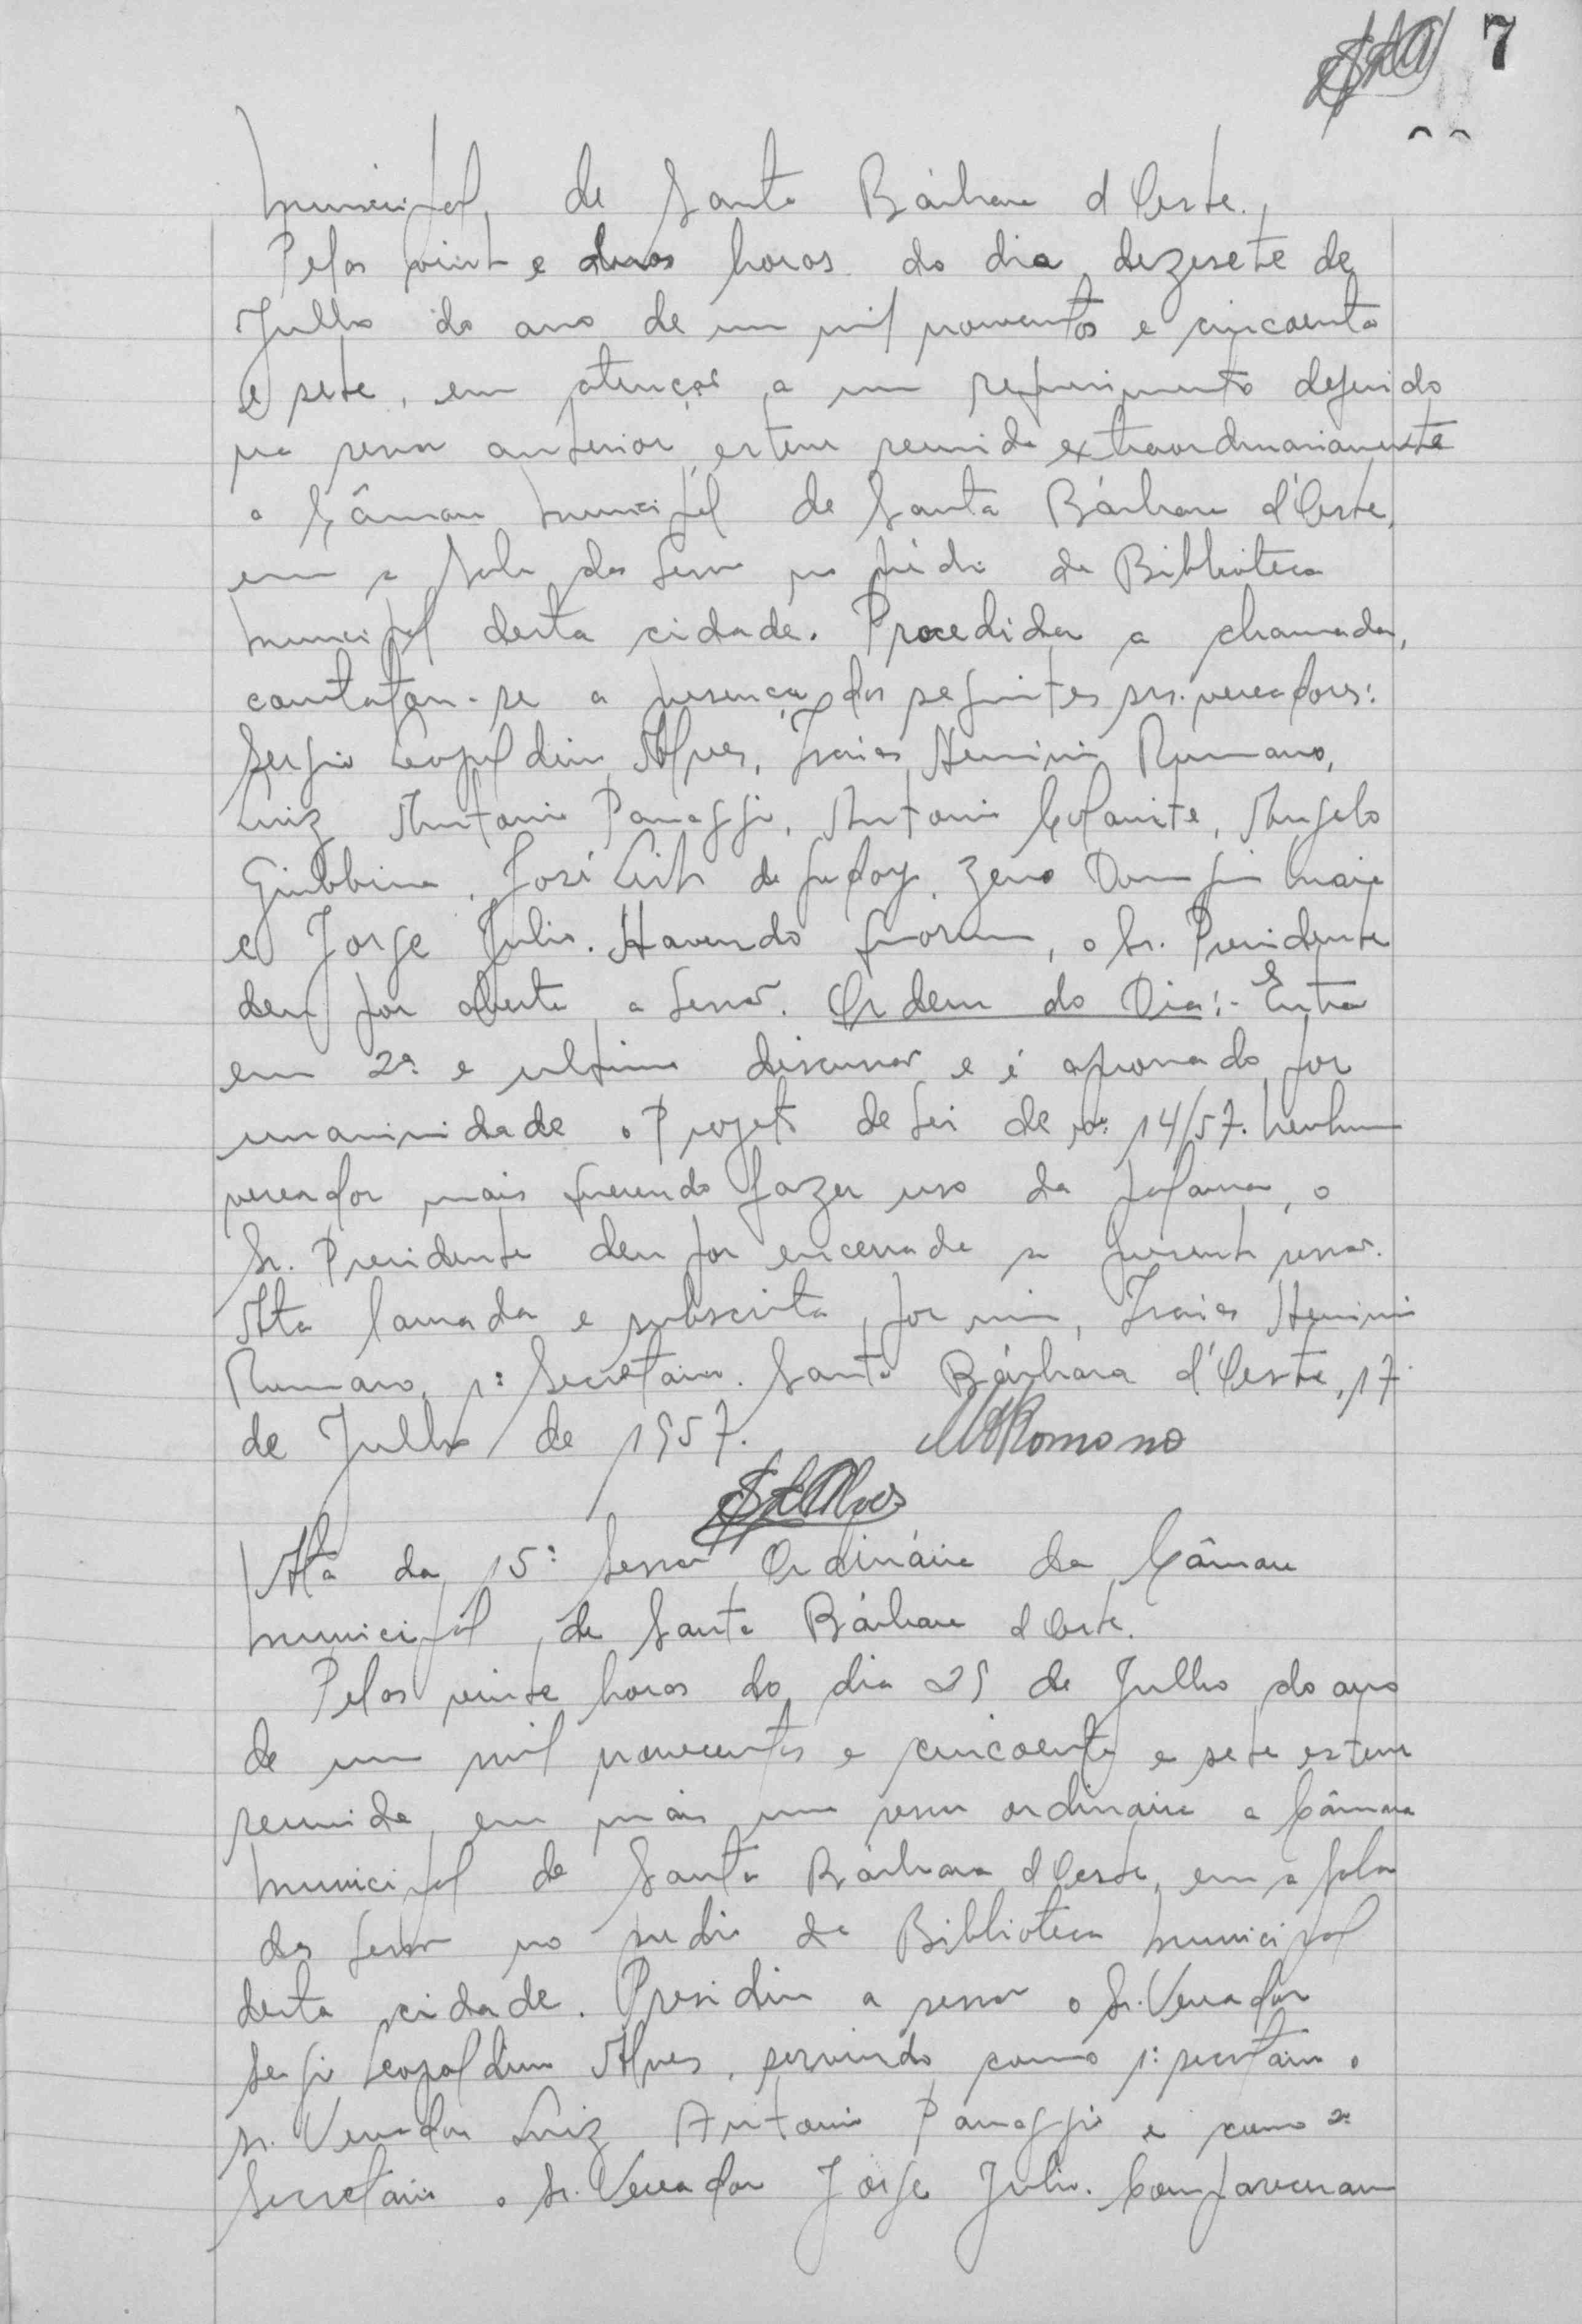 7
Municipal, de Santa Bárbara d'Oeste.
Pelas vinte e duas horas do dia dezesete de
Julho do ano de um mil novecentos e cincoenta
e sete, em atenção a um requerimento deferido
na sessão anterior, esteve reunida extraordinariamente
a Câmara Municipal de Santa Bárbara d'Oeste,
em a Sala das Sessões no prédio da Biblioteca
Municipal desta cidade. Procedida a chamada,
constatou-se a presença dos seguintes srs. vereadores:
Sergio Leopoldino Alves, Isaias Romano,
Luiz Antonio Panaggio, Antonio, Angelo
Giubbina, José Lino de Godoy, Zeno Maia
e Jorge Julio. Havendo quórum, o Sr. Presidente
deu por aberta a sessão. Ordem do Dia:- Entra
em 2ª e ultima discussão e é aprovado por
unanimidade o Projeto de Lei de nº 14/57. Nenhum
vereador mais querendo fazer uso da palavra, o
Sr. Presidente deu por encerrada a presente sessão.
Ata lavrada e subscrita por mim, Isaias
Romano, 1º Secretario. Santa Bárbara d'Oeste, 17
de Julho de 1957. Romano
SLAlves
Ata da 15ª Sessão Ordinária da Câmara
Municipal de Santa Bárbara d'Oeste.
Pelas vinte horas do dia 25 de Julho do ano
de um mil novecentos e cincoenta e sete esteve
reunida, em mais uma sessão ordinaria a Câmara
Municipal de Santa Bárbara d'Oeste, em a sala
das Sessões no predio da Biblioteca Municipal
desta cidade. Presidiu a sessão o Sr. Vereador
Sergio Leopoldino Alves, servindo como 1º secretario o
sr. Vereador Luiz Antonio Panaggio e como 2º
Secretario o Sr. Vereador Jorge Julio. Compareceram